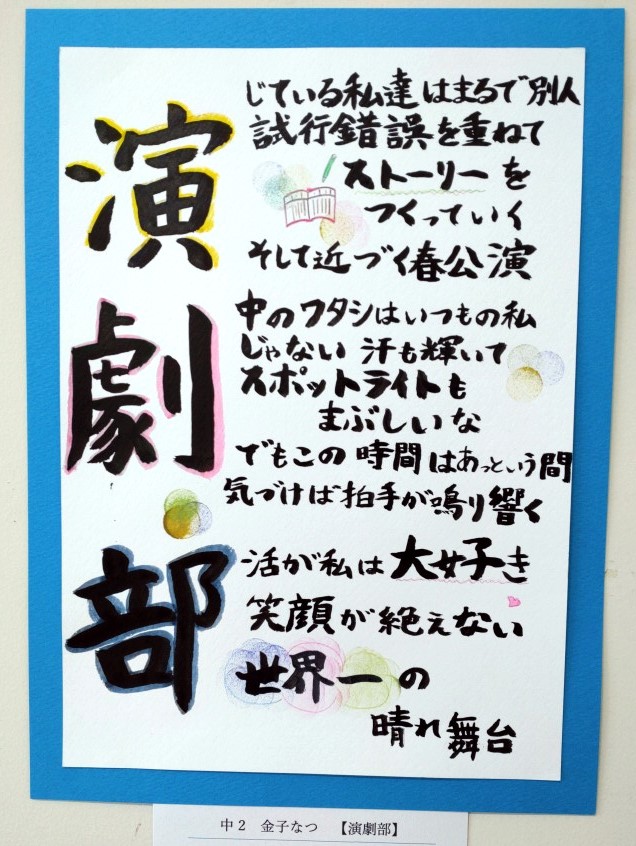 演じている私達はまるで別人
試行錯誤を重ねて
ストーリーを
つくっていく
そして近づく春公演
劇中のワタシはいつもの私
じゃない 汗も輝いて
スポットライトも
まぶしいな
でもこの時間はあっという間
気づけば拍手が鳴り響く
部活が私は大好き
笑顔が絶えない
世界一の
晴れ舞台
中2 金子なつ 【演劇部】